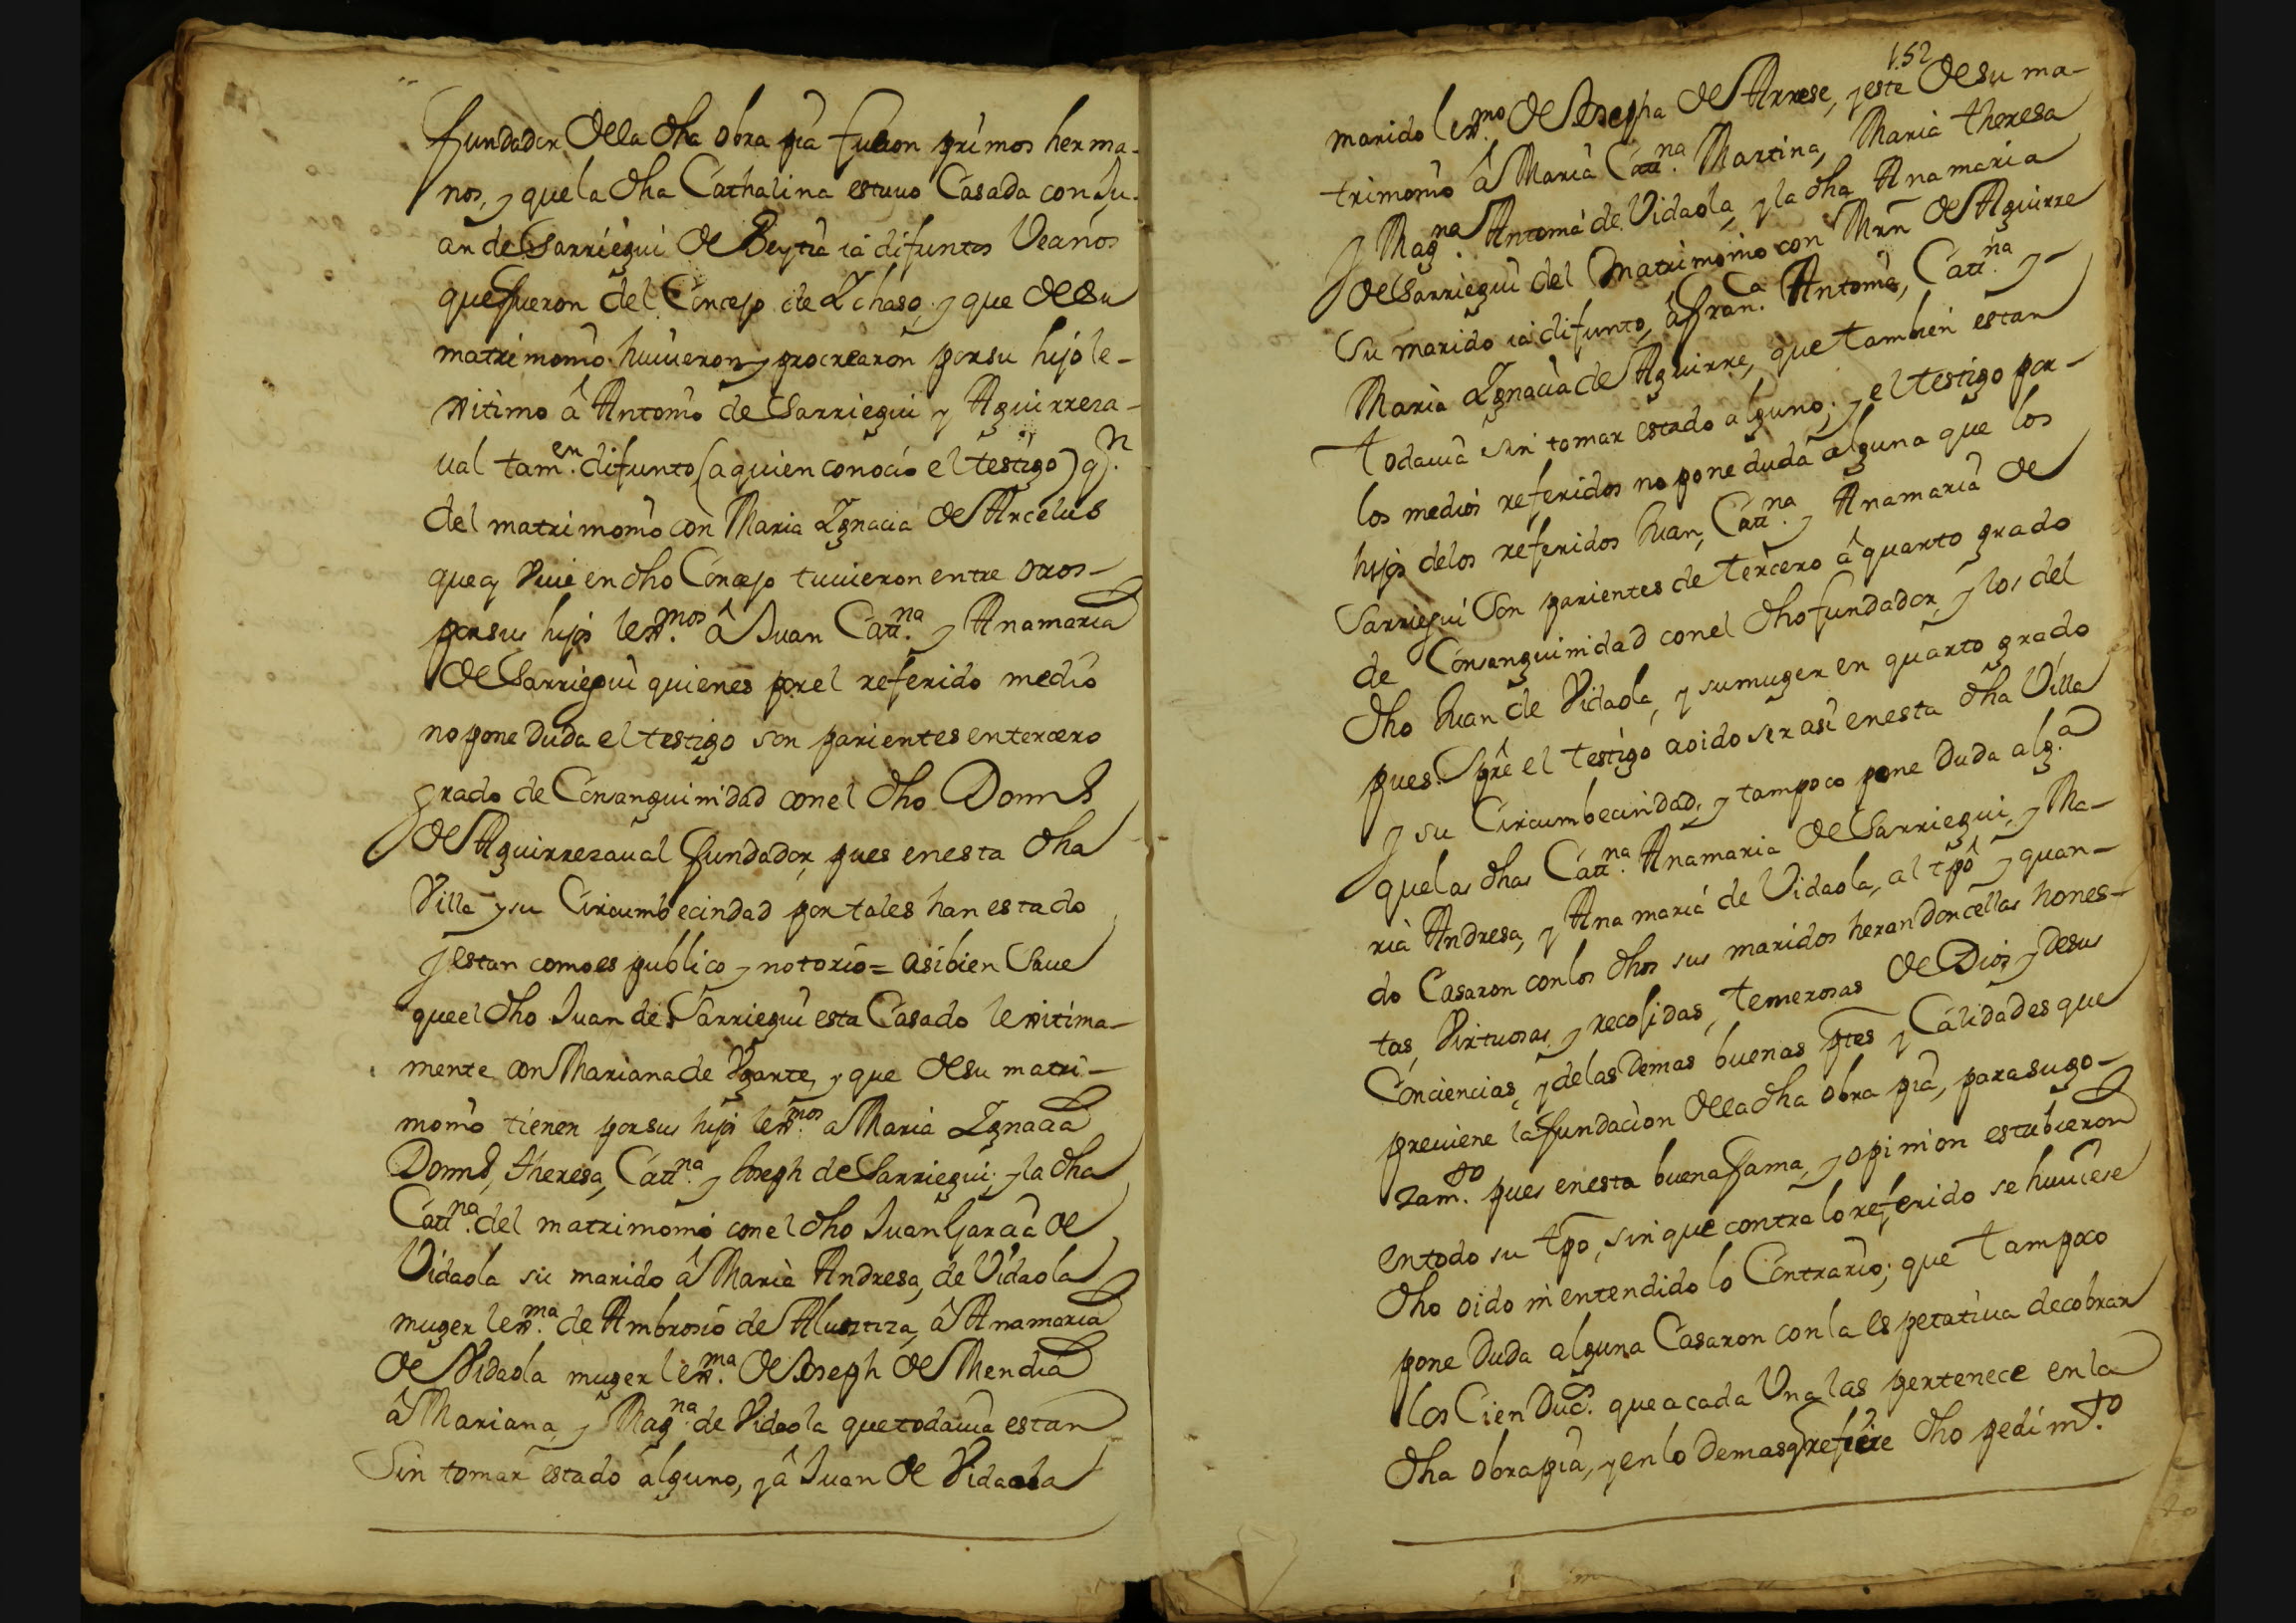 fundador de la dha obra pia fueron primos herma-
nos, y que la dha Cathalina estuuo Casada con Ju-
an de Sarriegui de Beytia ia difuntos Veçinos
que fueron del Concejo de Ychaso, y que de su
matrimonio huuieron y procrearon por su hijo le-
xitimo â Antonio de Sarriegui y Aguirreza-
ual tam.en difunto (a quien conocio el testigo) q.n
del matrimonio con Maria Ygnacia de Arcelus
que oy Viue en dho Concejo tuuieron entre otros
por sus hijos lexx.mos â Juan Catt.na y Anamaria
de Sarriegui quienes por el referido medio
no pone Duda el testigo son parientes en tercero
grado de Consanguinidad con el dho Dom.s
de Aguirrezaual fundador, pues en esta dha
Villa y su Circumbecindad por tales han estado
y estan como es publico y notorio = asibien Saue
que el dho Juan de Sarriegui esta Casado lexitima-
mente con Mariana de Vgarte, y que de su matri-
monio tienen por sus hijos lexx.mos a Maria Ygnacia
Dom.s, theresa, Catt.na y Joseph de Sarriegui; y la dha
Catt.na del matrimonio con el dho Juan Garcia de
Vidaola su marido â Maria Andresa, de Vidaola
muger lexx.ma de Ambrosio de Alustiza, â Anamaria
de Vidaola muger lexx.ma de Joseph de Mendia
â Mariana, y Mag.na de Vidaola que todauia estan
Sin tomar estado alguno, y â Juan de Vidaola
152
marido lexx.mo de Josepha de Arrese, y este de su ma-
trimonio â Maria Catt.na Martina, Maria theresa
y Mag.na Antonia de Vidaola, y la dha Anamaria
de Sarriegui del Matrimonio con Mrn de Aguirre
Su marido ia difunto, â fran.ca Antonia, Catt.na y
Maria Ygnacia de Aguirre, que tambien estan
todauia sin tomar estado alguno; y el testigo por
los medios referidos no pone duda alguna que los
hijos delos referidos Juan, Catt.na y Anamaria de
Sarriegui Son parientes de tercero â quarto grado
de Consanguinidad con el dho fundador, y los del
dho Juan de Vidaola, y su muger en quarto grado
pues Spre el testigo a oido ser asi en esta dha Villa
y su Circumbecindad, y tampoco pone Duda alg.a
que las dhas Catt.na Anamaria de Sarriegui, y Ma-
ria Andresa, y Ana maria de Vidaola, al tpo y quan-
do Casaron con los dhos sus maridos heran Doncellas hones-
tas, Virtuosas, y recojidas, temerosas de Dios, y de sus
Conciencias, y de las Demas buenas ptes y Calidades que
preuiene la fundacion de la dha obra pia, para su go-
zam.to pues en esta buena fama, y opinion estubieron
en todo su tpo, sin que contra lo referido se huuiese
dho oido ni entendido lo Contrario; que tampoco
pone Duda alguna Casaron con la espetatiua de cobrar
los Cien Duc.s que a cada Vna las pertenece en la
dha obra pia, y en lo Demas q refiere dho pedim.to